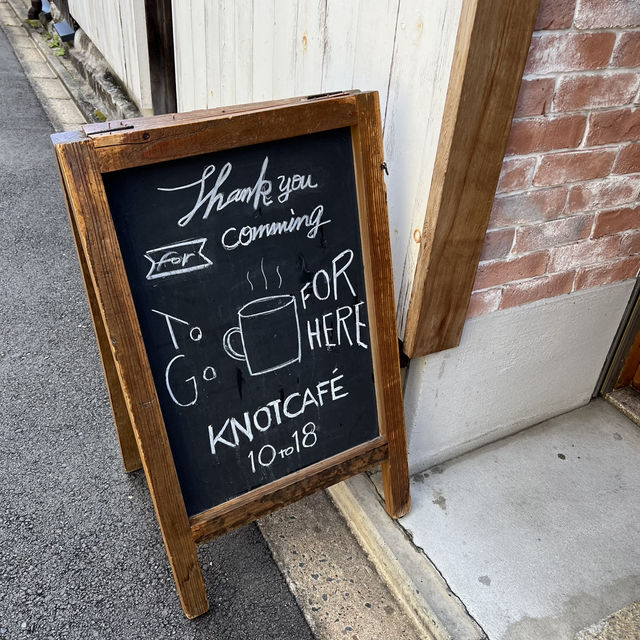 Thank you
for comming
To Go
FOR HERE
KNOTCAFÉ
10 to 18